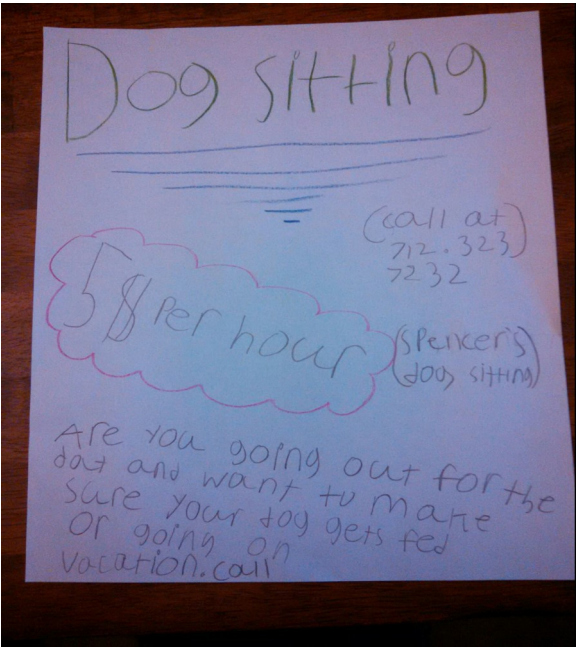 Dog sitting
(call at
712.323)
7232
5$ Per hour
(Spencer's)
(dog sitting)
Are you going out for the
dat and want to make
sure your dog gets fed
or going on
vacation.call